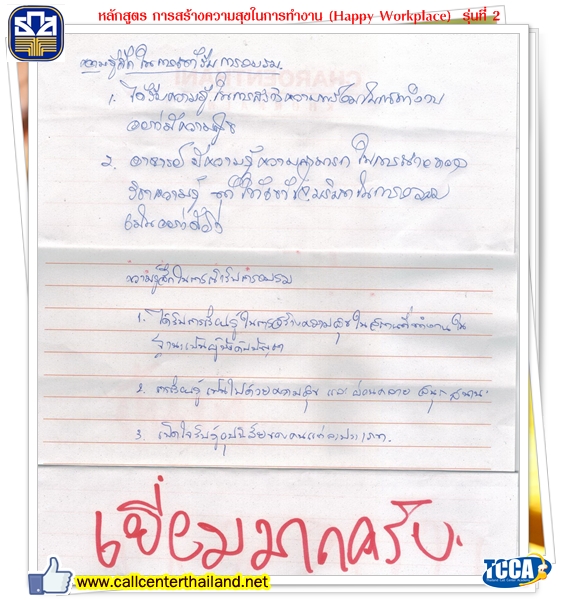 หลักสูตร การสร้างความสุขในการทำงาน (Happy Workplace) รุ่นที่ 2
ความรู้สึกในการเข้ารับการอบรม
1. ได้รับความรู้ในการสร้างความพร้อมในการทำงาน
อย่างมีความสุข
2. อาจารย์ มีความรู้ความสามารถ ในการถ่ายทอด
วิชาความรู้
เป็นอย่างยิ่ง
ความรู้สึกในการเข้ารับการอบรม
1. ได้รับการเรียนรู้ในการสร้างความสุขในสถานที่ทำงานใน
ฐานะเป็นผู้บังคับบัญชา
2. การเรียนรู้ เป็นไปด้วยความสุข และ ผ่อนคลาย สนุกสนาน
3. เปิดใจรับรู้อุปนิสัยของคนแต่ละประเภท.
เยี่ยมมากครับ
www.callcenterthailand.net
TCCA